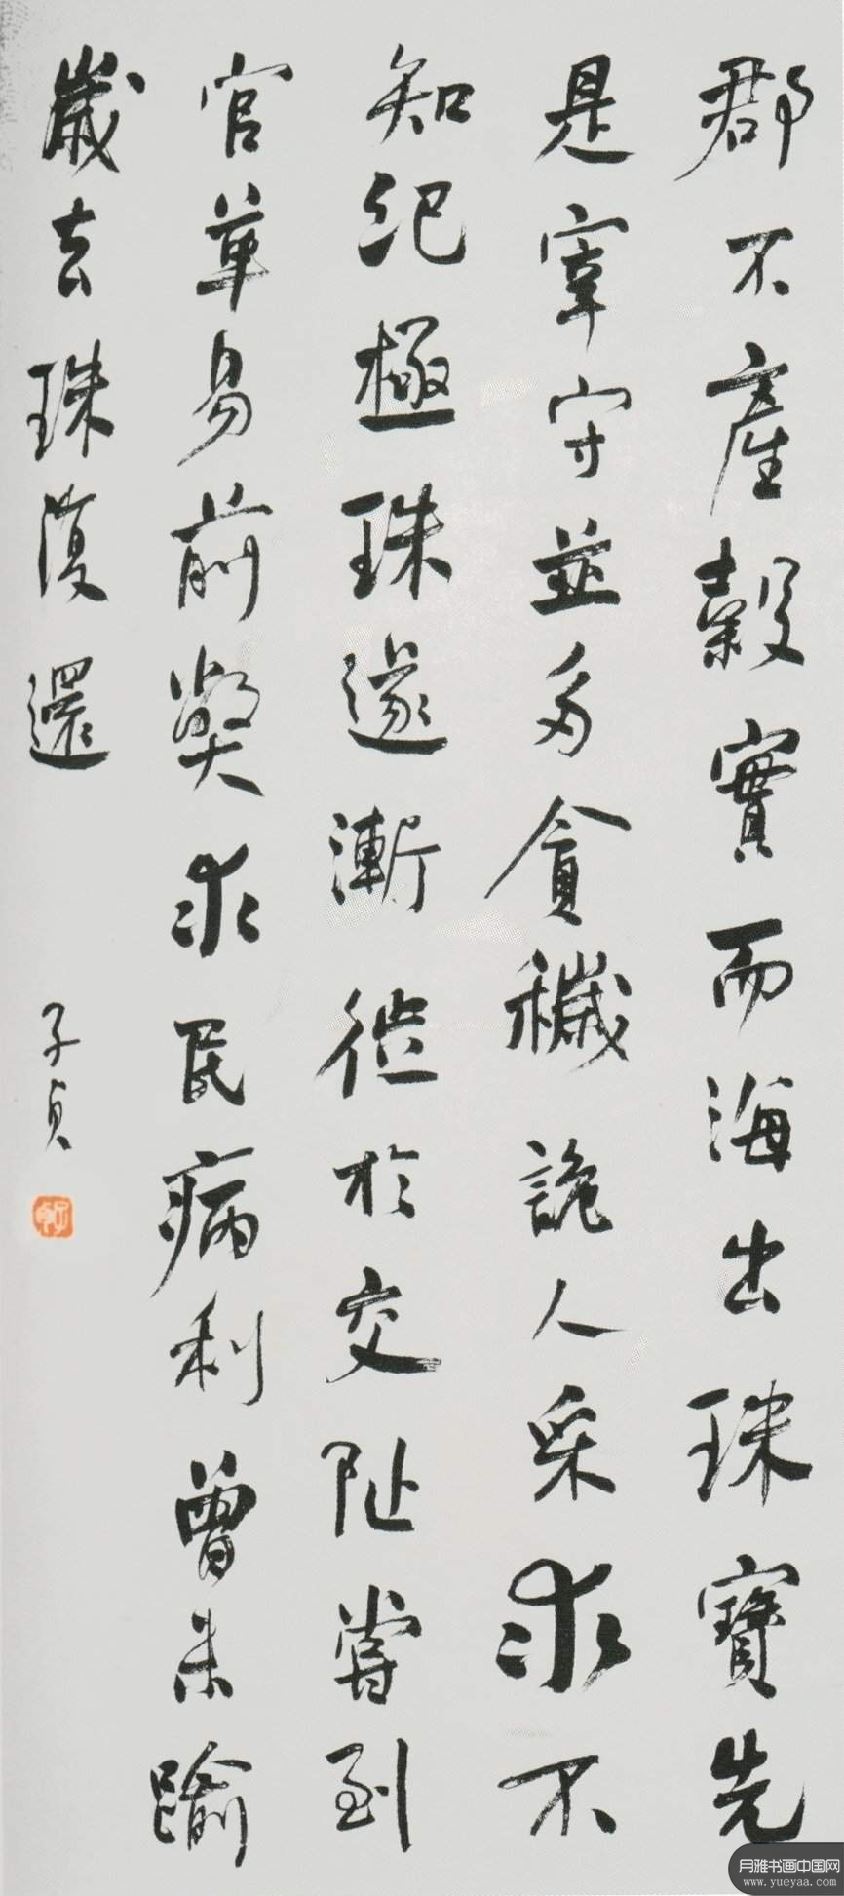 郡不產穀實而海出珠寶先
是宰守並多貪穢詭人采求不
知紀極珠遂漸徙於交阯嘗到
官革易前獘求民病利曾未踰
歲去珠復還
子貞
月雅书画中国网
www.yueyaa.com